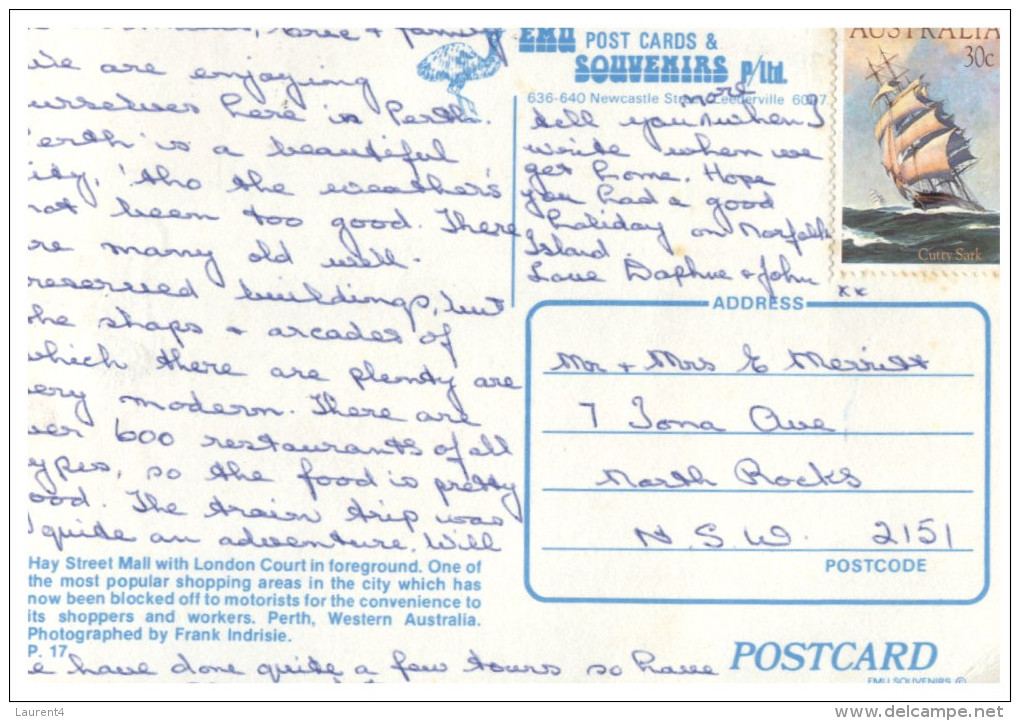 & family
We are enjoying
ourselves here in Perth.
Perth is a beautiful
city, 'tho the weather's
not been too good. There
are many old well-
preserved buildings, but
the shops + arcades of
which there are plenty are
very modern. There are
over 600 restaurants of all
types, so the food is pretty
good. The train trip was
quite an adventure. Will
Hay Street Mall with London Court in foreground. One of
the most popular shopping areas in the city which has
now been blocked off to motorists for the convenience to
its shoppers and workers. Perth, Western Australia.
Photographed by Frank Indrisie.
P. 17
have done quite a few tours so have
EMU POST CARDS &
SOUVENIRS P/Ltd.
636-640 Newcastle Street Leederville 6007
more
tell you when I
write when we
get home. Hope
you had a good
holiday on Norfolk
Island.
Love Daphne + John
xx
AUSTRALIA
30c
Cutty Sark
ADDRESS
Mr + Mrs E Merritt
7 Iona Ave
North Rocks
N.S.W. 2151
POSTCODE
POSTCARD
EMU SOUVENIRS ©
Laurent4
delcampe.net